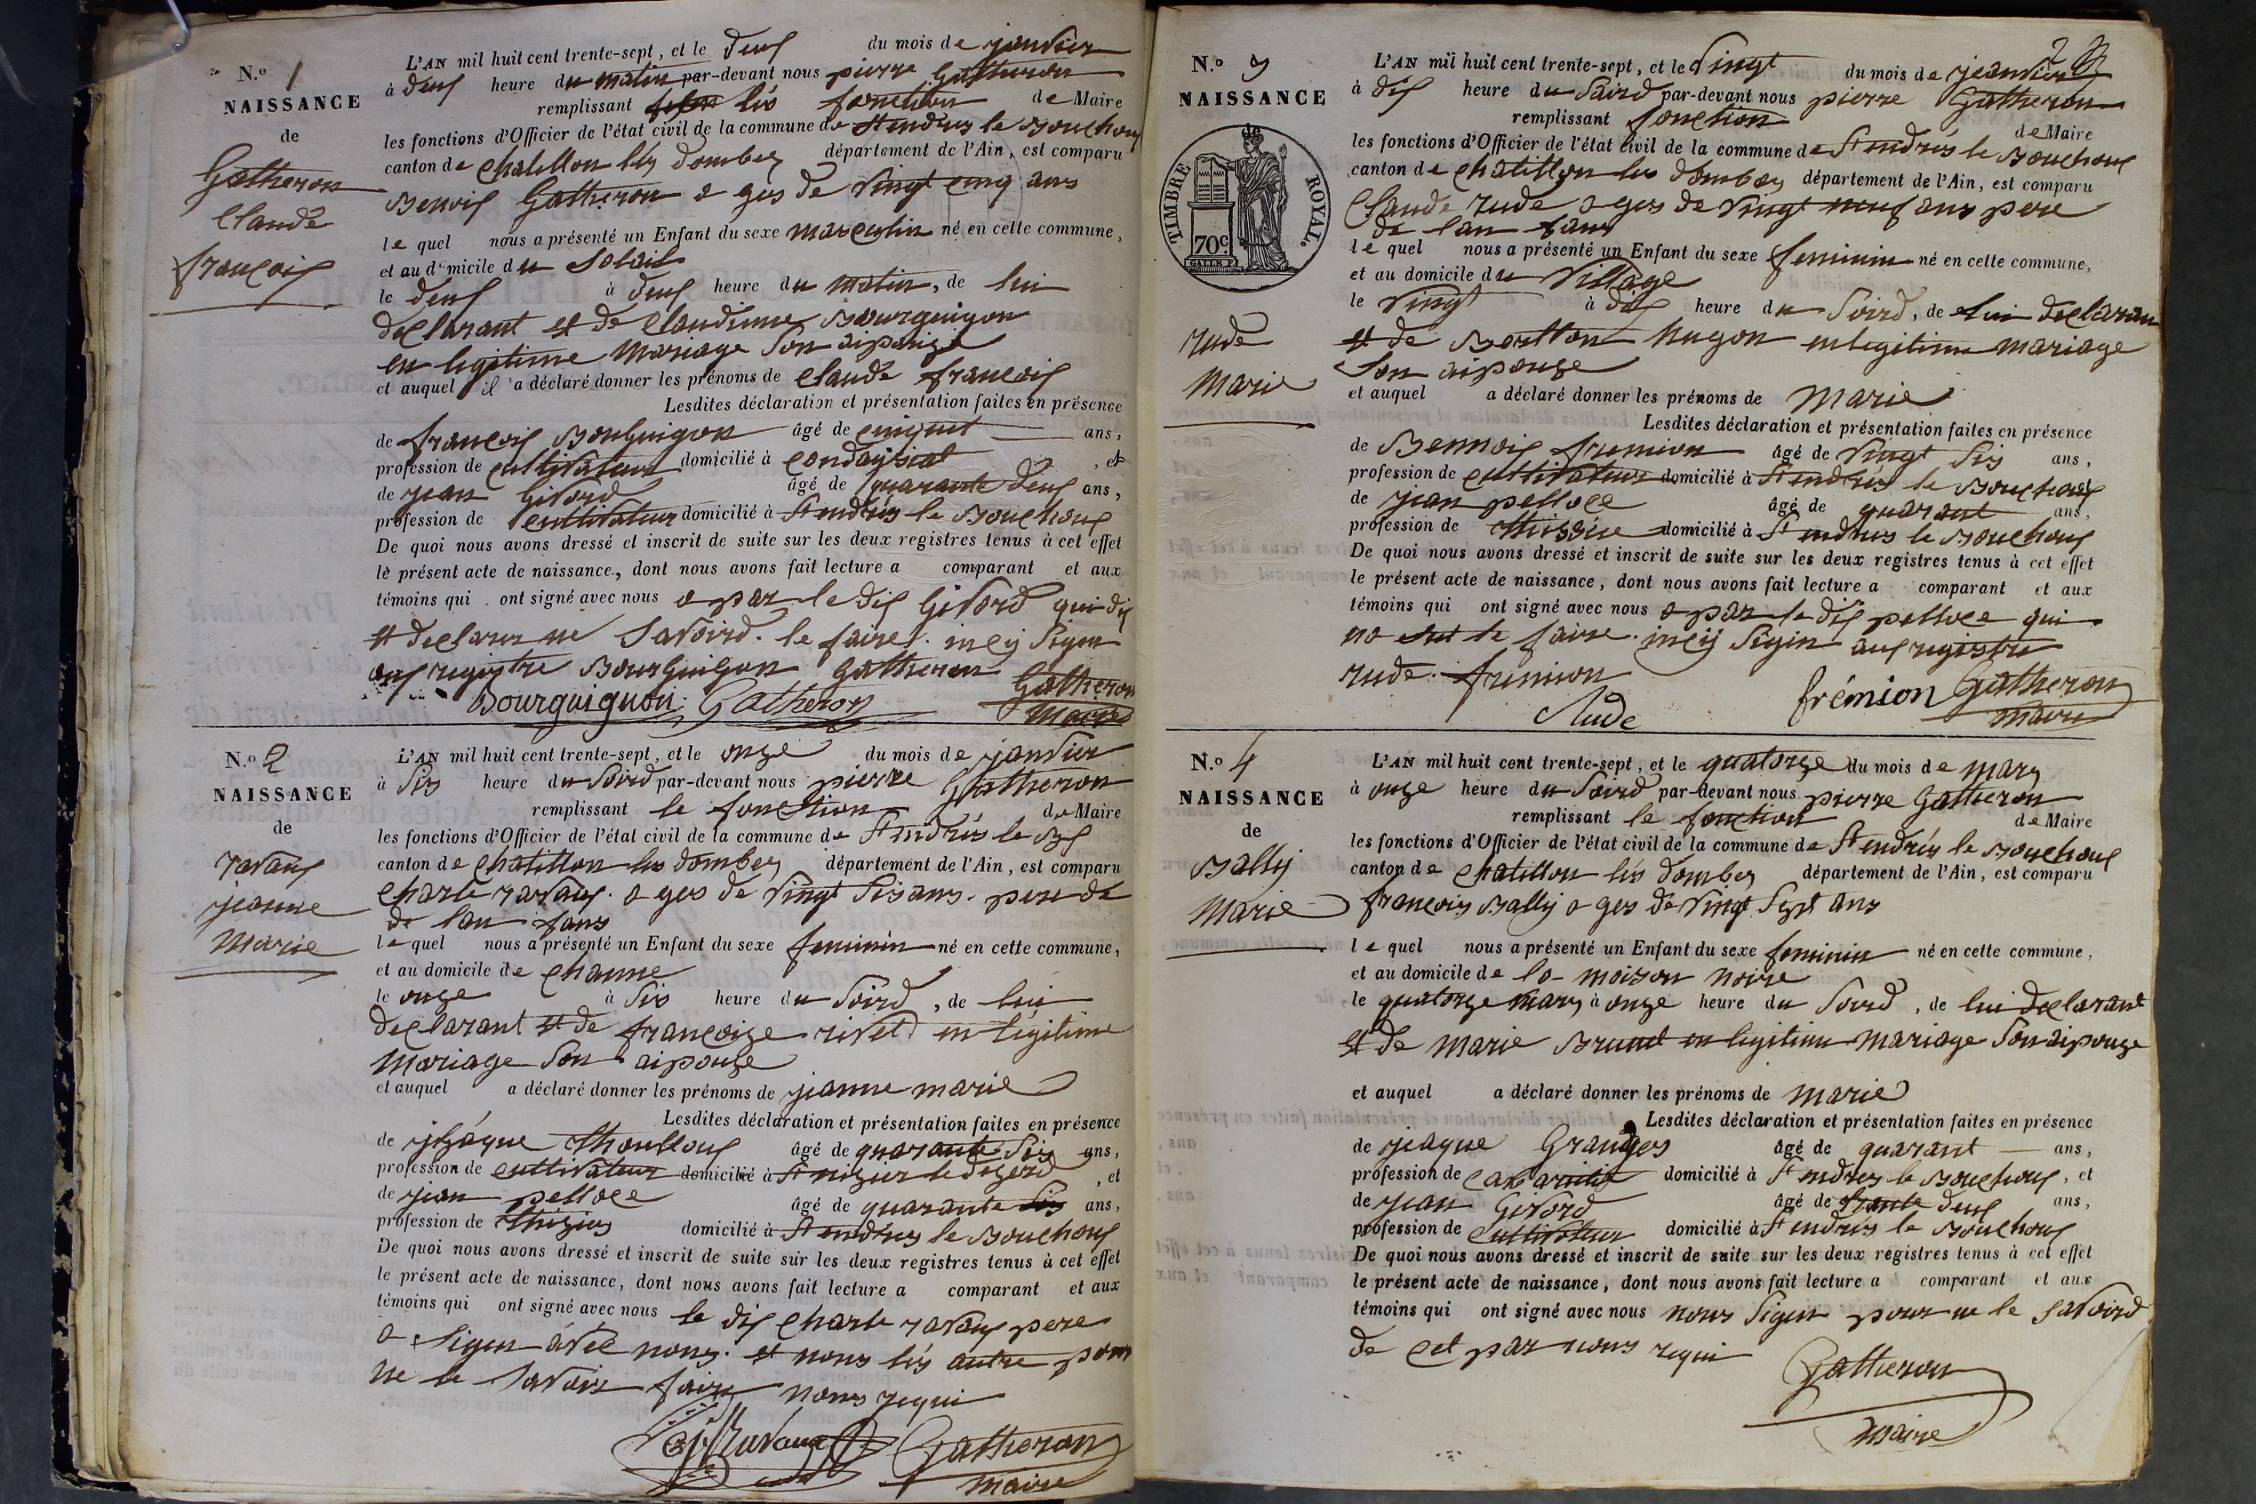 N.º 1
NAISSANCE
de
Gatheron
Claude
françois
L'AN mil huit cent trente-sept, et le deux du mois de janvier
à deux heure du matin par-devant nous pierre Gatheron
remplissant lés fonction de Maire
les fonctions d'Officier de l'état civil de la commune de St endrés le Bouchoux
canton de Chatillon lés dombes département de l'Ain, est comparu
Benoix Gatheron a ges de vingt cinq ans
le quel nous a présenté un Enfant du sexe masculin né en cette commune,
et au domicile du
le deux à deux heure du matin, de lui
declarant et de Claudinne Bourguigon
en legitime mariage son aipouze
et auquel il a déclaré donner les prénoms de Claude françois
Lesdites déclaration et présentation faites en présence
de françois Bourguigon âgé de cinquet ans,
profession de cultivateur domicilié à Condaysiat, et
de jean Givord âgé de quarante deux ans,
profession de cultivateur domicilié à St endrés le Bouchoux
De quoi nous avons dressé et inscrit de suite sur les deux registres tenus à cet effet
le présent acte de naissance, dont nous avons fait lecture a comparant et aux
témoins qui ont signé avec nous a par le dis Givord qui dis
et declarer ne savoird le faire. in cy signer
aux registre Bourguigon gatheron
Bourguignon Gatheron Gatheron
Maire
N.º 2
NAISSANCE
de
ravaux
jeanne
Marie
L'AN mil huit cent trente-sept, et le onze du mois de janvier
à sis heure du soird par-devant nous pierre Gatheron
remplissant le fonction de Maire
les fonctions d'Officier de l'état civil de la commune de St endrés le Bx
canton de Chatillon lés dombes département de l'Ain, est comparu
Charle ravaux. a ges de vingt sis ans. pere de
de lan fans
le quel nous a présenté un Enfant du sexe feminin né en cette commune,
et au domicile de Channe
le onze à sis heure du soird, de lui
declarant et de françoize rivet en légitime
mariage son aipouze
et auquel a déclaré donner les prénoms de jeanne marie
Lesdites déclaration et présentation faites en présence
de Thoulloux âgé de quarante sis ans,
profession de cultivateur domicilié à St nizier le dezerd, et
de jean pelloce âgé de quarante sis ans,
profession de thizier domicilié à St endrés le Bouchoux
De quoi nous avons dressé et inscrit de suite sur les deux registres tenus à cet effet
le présent acte de naissance, dont nous avons fait lecture a comparant et aux
témoins qui ont signé avec nous le dis Charle ravaux pere
a signer avec nous. et nous lés autre pour
ne le savoir faire nous requi
Ravaux Gatheron
Maire
N.º 3
NAISSANCE
de
TIMBRE ROYAL.
70c
rude
Marie
2
L'AN mil huit cent trente-sept, et le vingt du mois de jeanvier
à dix heure du soird par-devant nous pierre Gatheron
remplissant fonction de Maire
les fonctions d'Officier de l'état civil de la commune de St endrés le Bouchoux
canton de Chatillon les dombes département de l'Ain, est comparu
Claude rude a ges de vingt neuf ans pere
de lan fans
le quel nous a présenté un Enfant du sexe feminin né en cette commune,
et au domicile du village
le vingt à dix heure du soird, de lui declaran
et de Hugon en legitime mariage
son aipouze
et auquel a déclaré donner les prénoms de Marie
Lesdites déclaration et présentation faites en présence
de Bennois fremion âgé de vingt sis ans,
profession de cultivateur domicilié à St endrés le Bouchoux, et
de jean pelloce âgé de quarant ans,
profession de domicilié à St endrés le Bouchoux
De quoi nous avons dressé et inscrit de suite sur les deux registres tenus à cet effet
le présent acte de naissance, dont nous avons fait lecture a comparant et aux
témoins qui ont signé avec nous a par le dis pelloce qui
no le faire. in cy signer aux registre
rude. fremion
Rude frémion Gatheron
Maire
N.º 4
NAISSANCE
de
Bally
Marie
L'AN mil huit cent trente-sept, et le quatorze du mois de mars
à onze heure du soird par-devant nous pierre Gatheron
remplissant le fonction de Maire
les fonctions d'Officier de l'état civil de la commune de St endrés le Bouchoux
canton de Chatillon lés dombes département de l'Ain, est comparu
françois Bally a ges de vingt sept ans
le quel nous a présenté un Enfant du sexe feminin né en cette commune,
et au domicile de la maison noire
le quatorze mars à onze heure du soird, de lui declarant
et de Marie Brunet en legitime mariage son aipouze
et auquel a déclaré donner les prénoms de Marie
Lesdites déclaration et présentation faites en présence
de jeaque Granges âgé de quarant ans,
profession de domicilié à St endres le Bouchoux, et
de jean Givord âgé de trante deux ans,
profession de cultivateur domicilié à St endres le Bouchoux
De quoi nous avons dressé et inscrit de suite sur les deux registres tenus à cet effet
le présent acte de naissance, dont nous avons fait lecture a comparant et aux
témoins qui ont signé avec nous nous signer pour ne le savoird
de cet par nous requi
Gatheron
Maire